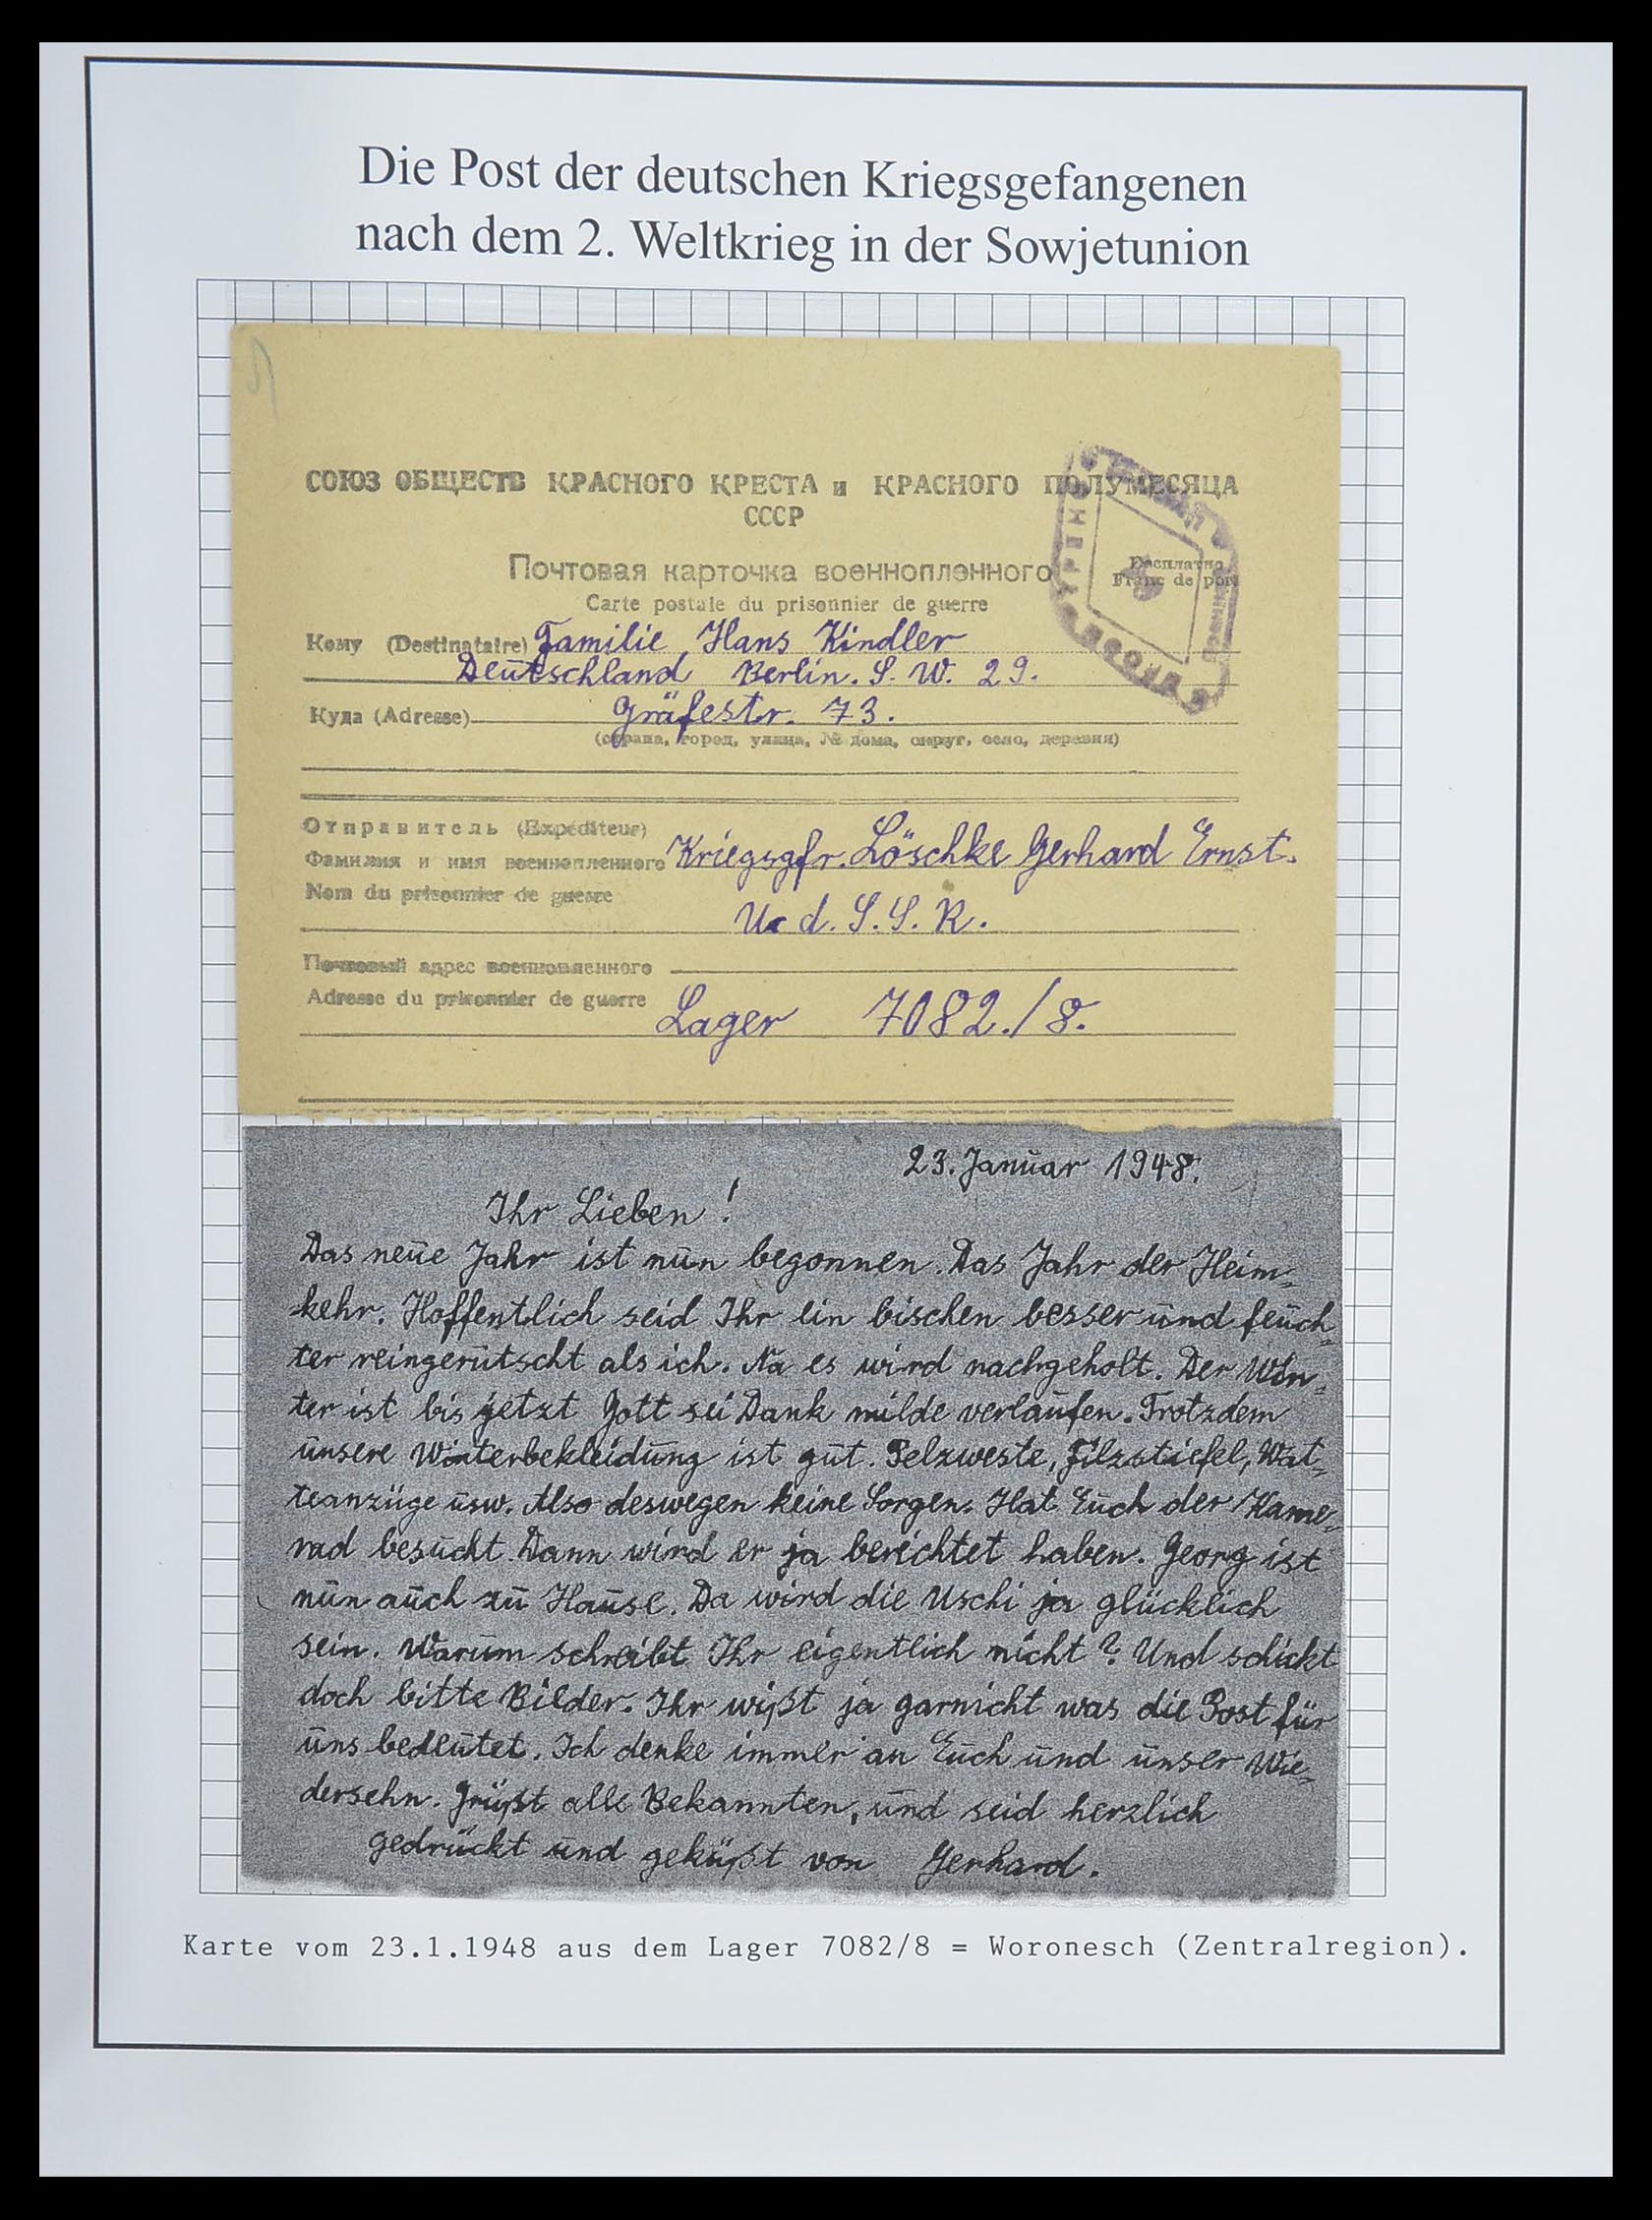 Die Post der deutschen Kriegsgefangenen
nach dem 2. Weltkrieg in der Sowjetunion
СОЮЗ ОБЩЕСТВ КРАСНОГО КРЕСТА и КРАСНОГО ПОЛУМЕСЯЦА
СССР
Почтовая карточка военнопленного
Бесплатно
Franc de port
Carte postale du prisonnier de guerre
Кому (Destinataire) Familie Hans Kindler
Deutschland Berlin. S. W. 29.
Куда (Adresse) Gräfestr. 73.
(страна, город, улица, № дома, округ, село, деревня)
Отправитель (Expéditeur)
Фамилия и имя военнопленного Kriegsgfr. Löschke Gerhard Ernst.
Nom du prisonnier de guerre
U. d. S. S. R.
Почтовый адрес военнопленного
Adresse du prisonnier de guerre Lager 7082./8.
23. Januar 1948.
Ihr Lieben!
Das neue Jahr ist nun begonnen. Das Jahr der Heim=
=kehr. Hoffentlich seid Ihr ein bischen besser und feuch=
ter reingerutscht als ich. Na es wird nachgeholt. Der Win=
ter ist bis jetzt Gott sei Dank milde verlaufen. Trotzdem
unsere Winterbekleidung ist gut. Pelzweste, Filzstiefel, Wat=
teanzüge usw. Also deswegen keine Sorgen. Hat Euch der Kame=
rad besucht. Dann wird er ja berichtet haben. Georg ist
nun auch zu Hause. Da wird die Uschi ja glücklich
sein. Warum schreibt Ihr eigentlich nicht? Und schickt
doch bitte Bilder. Ihr wißt ja garnicht was die Post für
uns bedeutet. Ich denke immer an Euch und unser Wie=
dersehn. Grüßt alle Bekannten, und seid herzlich
gedrückt und geküßt von Gerhard.
Karte vom 23.1.1948 aus dem Lager 7082/8 = Woronesch (Zentralregion).